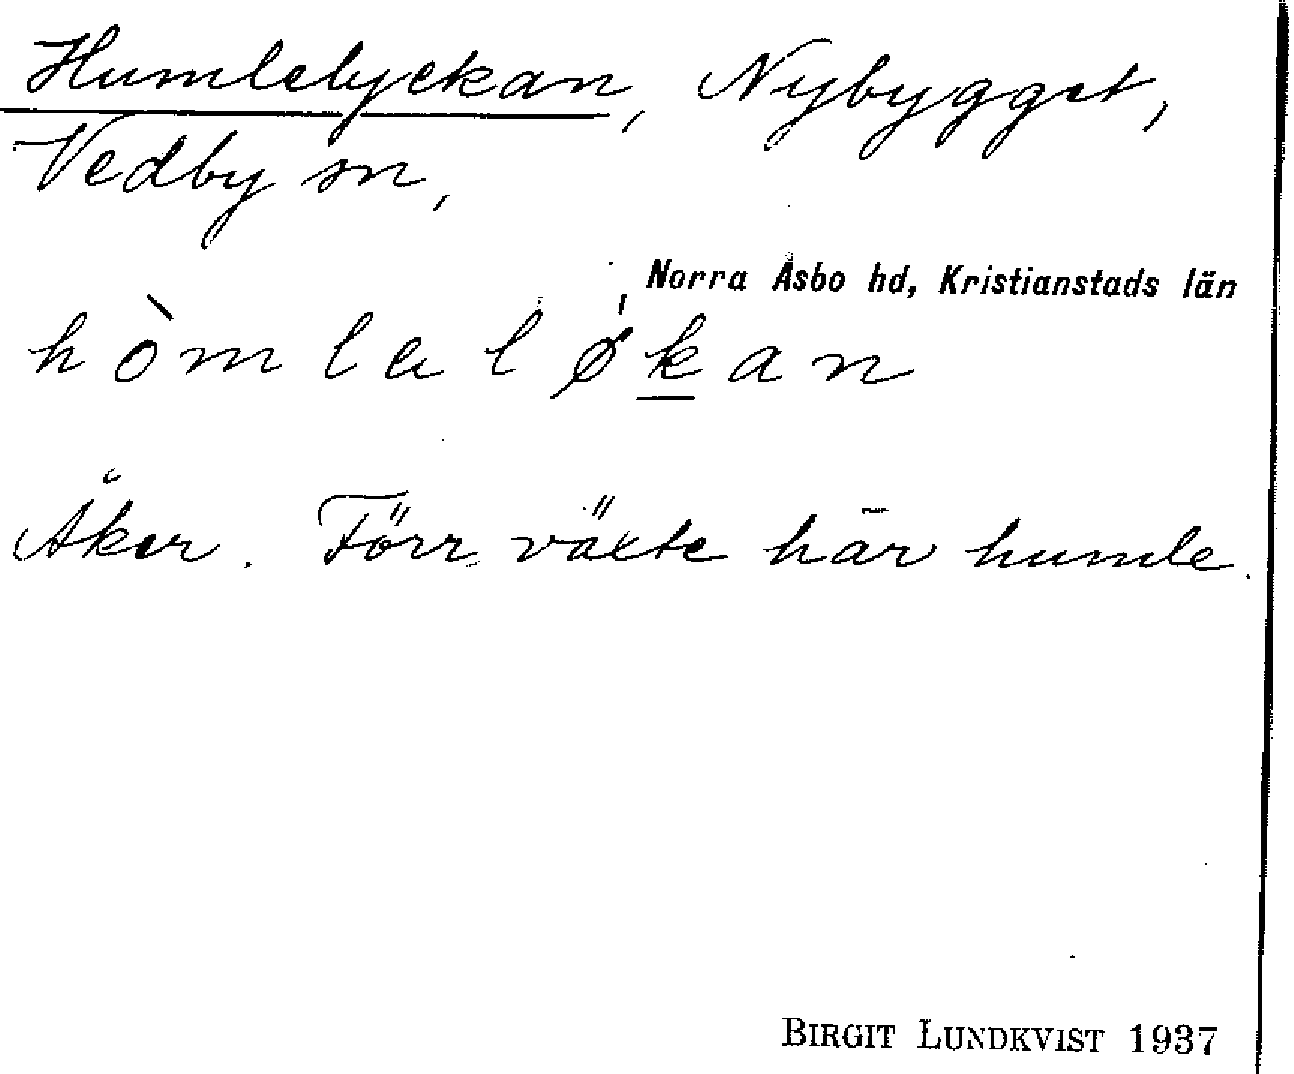 Humlelyckan, Nybygget,
Vedby sn,
Norra Åsbo hd, Kristianstads län
hòmlalø̍kan
Åker. Förr växte här humle.
BIRGIT LUNDKVIST 1937